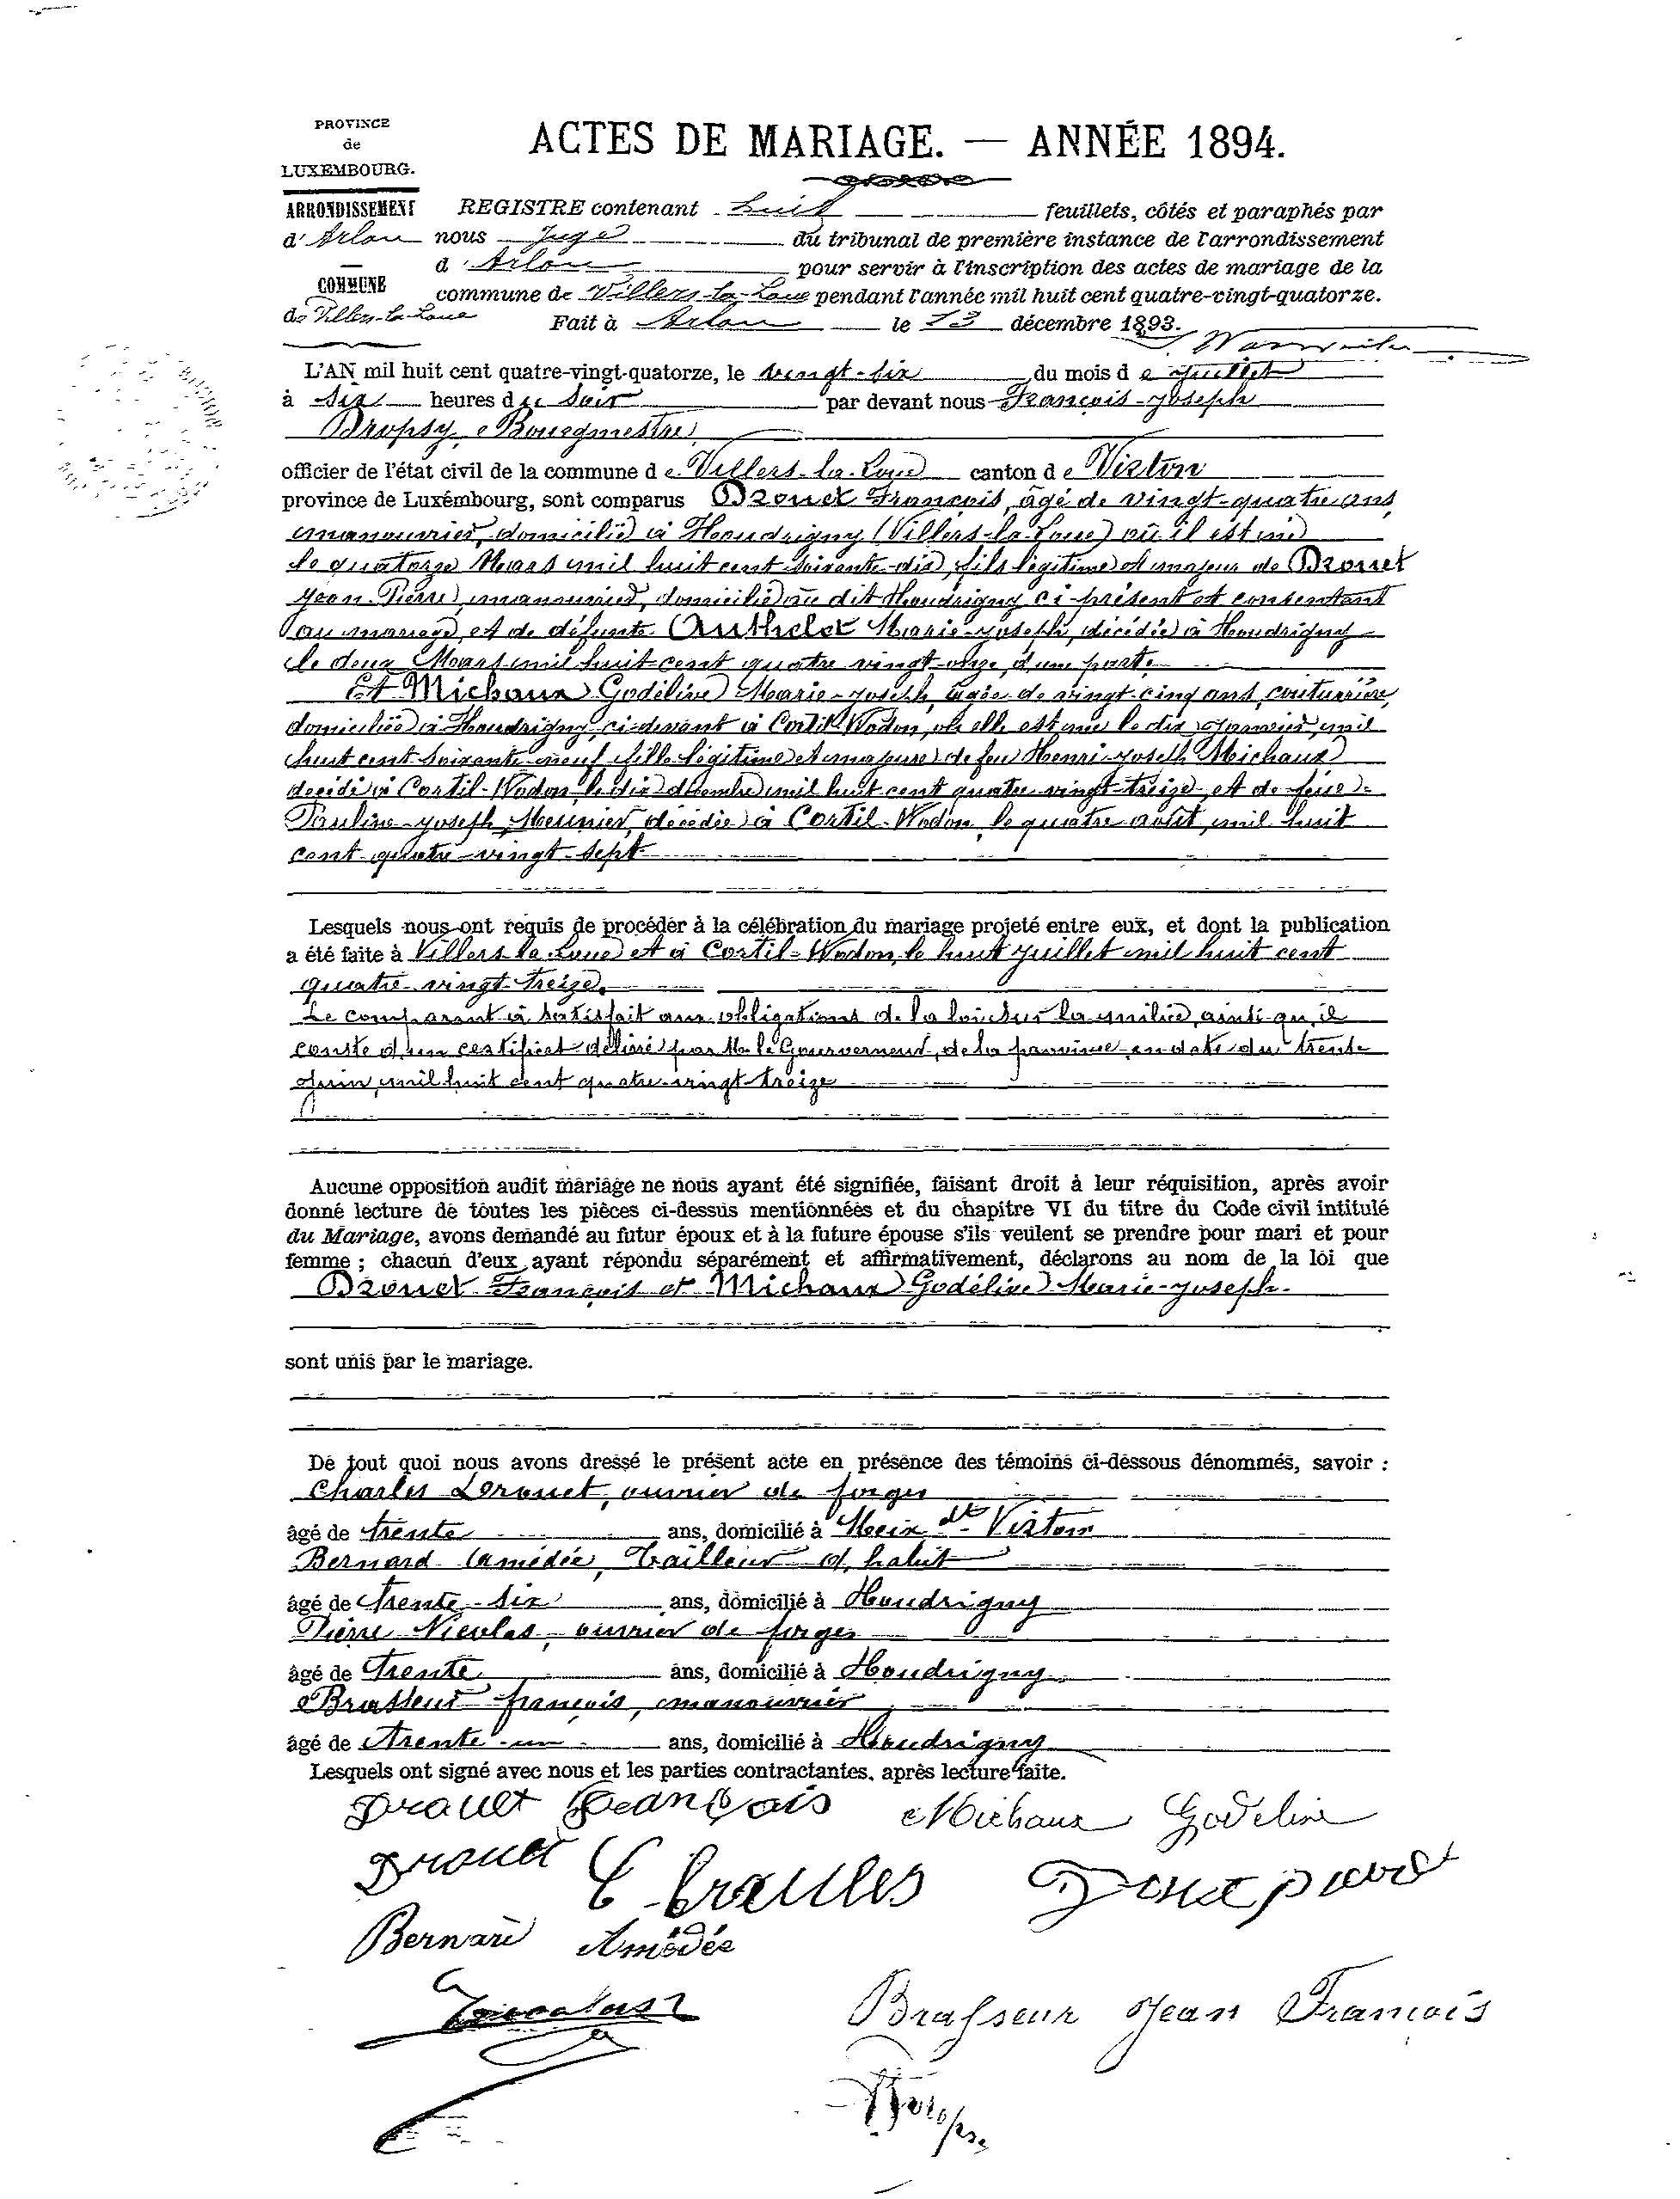 PROVINCE
de
LUXEMBOURG.
ARRONDISSEMENT
d'Arlon
COMMUNE
de Villers-la-Loue
ACTES DE MARIAGE. — ANNÉE 1894.
REGISTRE contenant huit feuillets, côtés et paraphés par
nous Juge du tribunal de première instance de l'arrondissement
d'Arlon pour servir à l'inscription des actes de mariage de la
commune de Villers-la-Loue pendant l'année mil huit cent quatre-vingt-quatorze.
Fait à Arlon le 13 décembre 1893.
L'AN mil huit cent quatre-vingt-quatorze, le vingt-six du mois de Juillet
à six heures du soir par devant nous François-Joseph
Dropsy, Bourgmestre
officier de l'état civil de la commune de Villers-la-Loue canton de Virton
province de Luxembourg, sont comparus Drouet François, âgé de vingt-quatre ans,
manouvrier, domicilié à Houdrigny (Villers-la-Loue) où il est né
le quatorze Mars mil huit cent soixante-dix, fils légitime et majeur de Drouet
Jean-Pierre, manouvrier, domicilié au dit Houdrigny ci-présent et consentant
au mariage, et de défunte Authelet Marie-Joseph, décédée à Houdrigny
le deux Mars mil huit cent quatre vingt-onze, d'une part.
Et Michaux Godélive Marie-Joseph, âgée de vingt-cinq ans, couturière,
domiciliée à Houdrigny, ci-devant à Cortil-Wodon, où elle est née le dix Janvier mil
huit cent soixante-neuf fille légitime et majeure de feu Henri-Joseph Michaux
décédé à Cortil-Wodon, le dix décembre mil huit cent quatre-vingt-treize et de feue
Pauline-Joseph Meunier, décédée à Cortil-Wodon, le quatre août mil huit
cent quatre-vingt-sept
Lesquels nous ont requis de procéder à la célébration du mariage projeté entre eux, et dont la publication
a été faite à Villers-la-Loue et à Cortil-Wodon, le huit Juillet mil huit cent
quatre-vingt-treize.
Le comparant a satisfait aux obligations de la loi sur la milice, ainsi qu'il
conste d'un certificat délivré par Mr le Gouverneur de la province en date du trente
Juin mil huit cent quatre-vingt-treize
Aucune opposition audit mariage ne nous ayant été signifiée, faisant droit à leur réquisition, après avoir
donné lecture de toutes les pièces ci-dessus mentionnées et du chapitre VI du titre du Code civil intitulé
du Mariage, avons demandé au futur époux et à la future épouse s'ils veulent se prendre pour mari et pour
femme ; chacun d'eux ayant répondu séparément et affirmativement, déclarons au nom de la loi que
Drouet François et Michaux Godélive Marie-Joseph.
sont unis par le mariage.
De tout quoi nous avons dressé le présent acte en présence des témoins ci-dessous dénommés, savoir :
Charles Drouet, ouvrier de forges
âgé de trente ans, domicilié à Meix dt Virton
Bernard Amédée, tailleur d'habit
âgé de trente-six ans, domicilié à Houdrigny
Pierre Nicolas, ouvrier de forges
âgé de trente ans, domicilié à Houdrigny
Brasseur françois, manouvrier
âgé de trente-un ans, domicilié à Houdrigny
Lesquels ont signé avec nous et les parties contractantes, après lecture faite.
Drouet François Michaux Godelive
Drouet Charles
Bernard Amédée
Brasseur Jean François